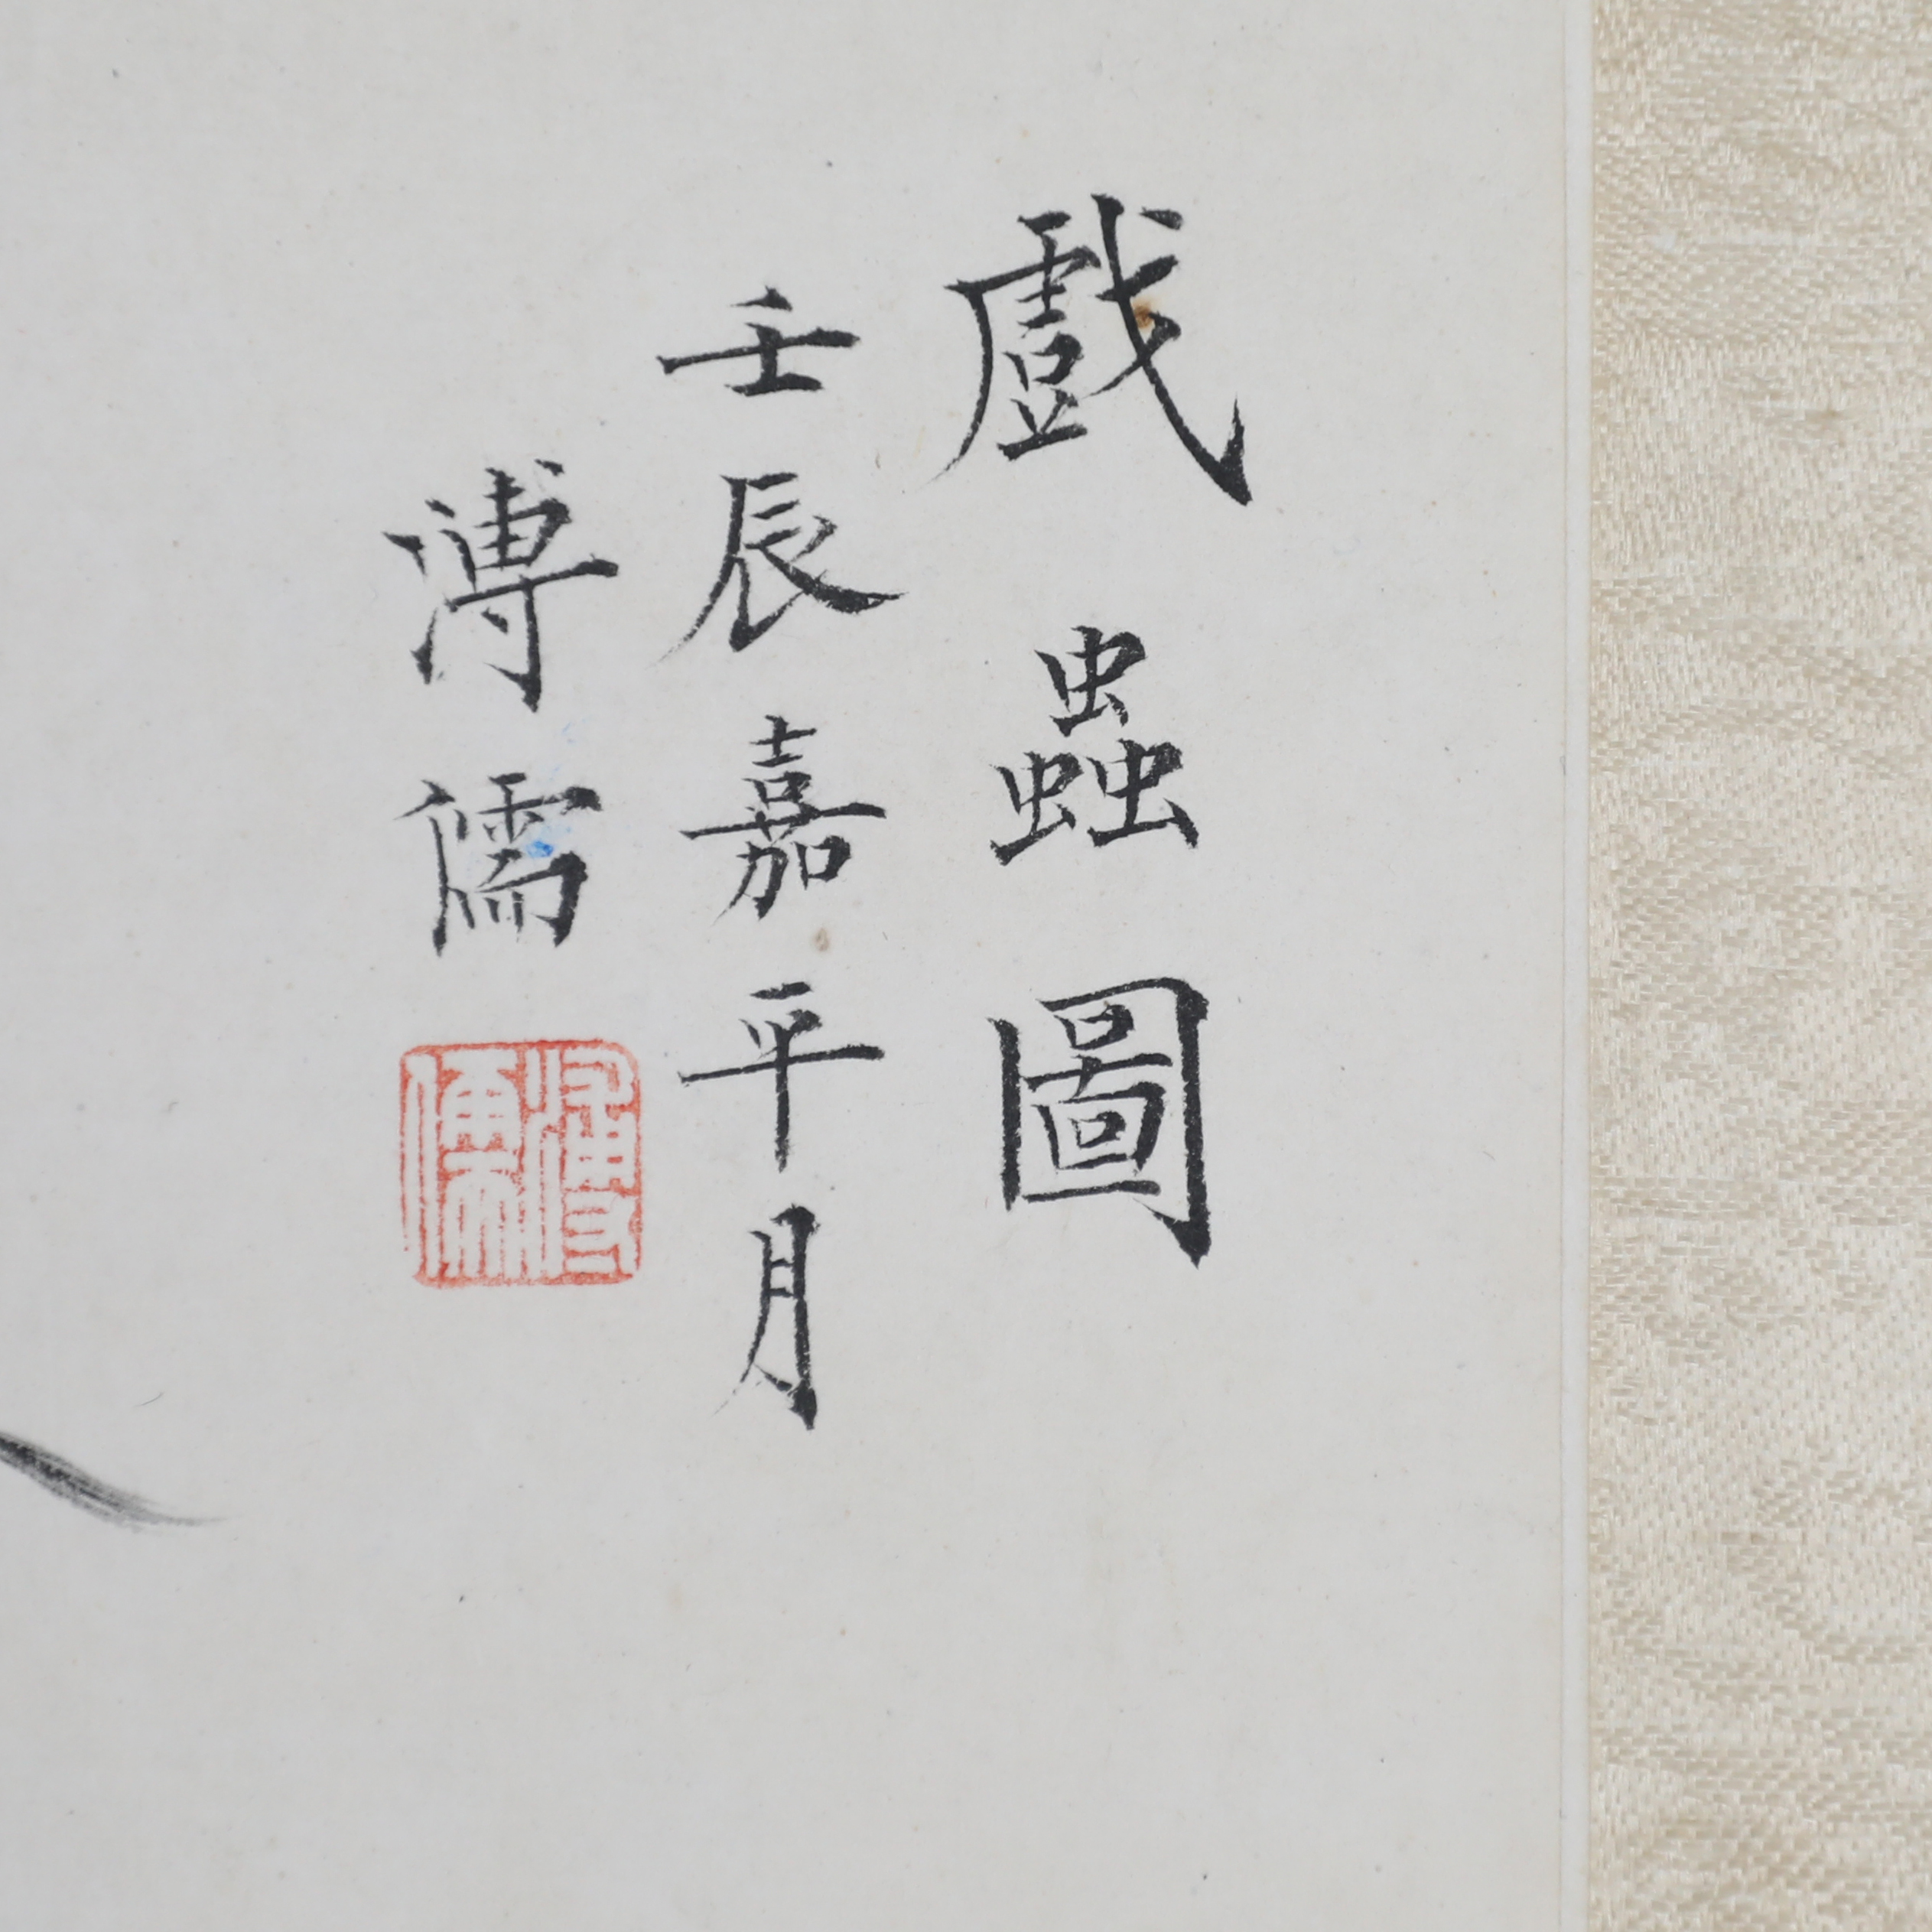 戲蟲圖
壬辰嘉平月
溥儒
溥儒